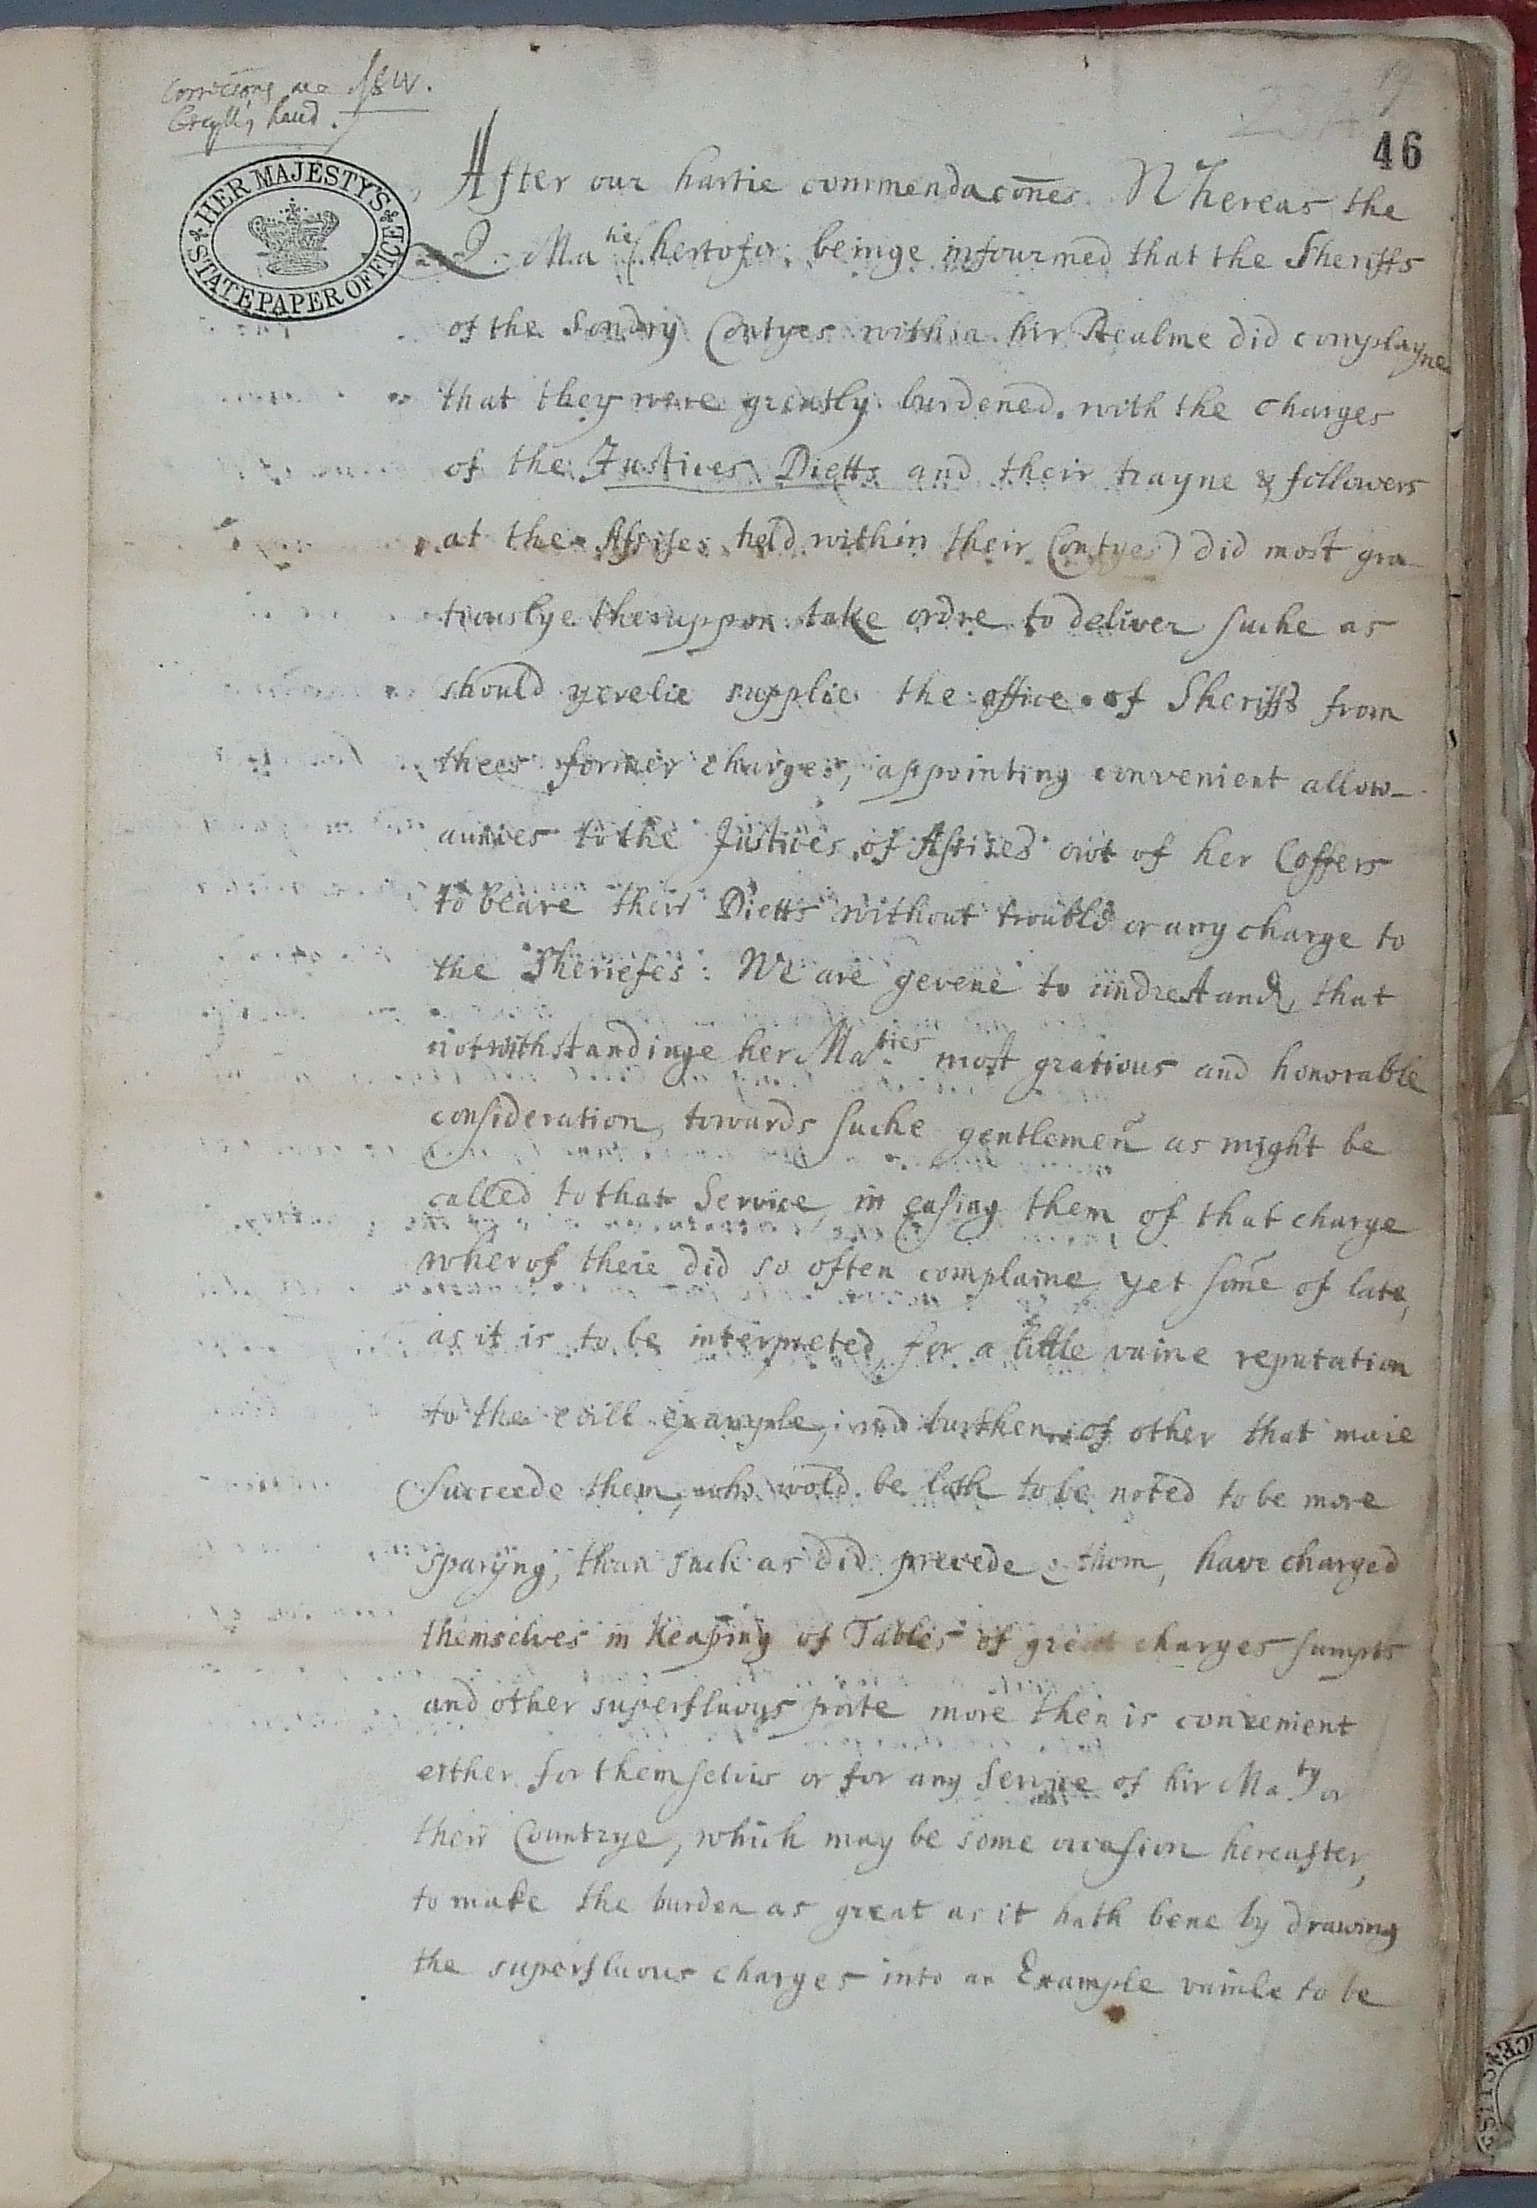 Corrections are
hand.
19
46
HER MAJESTY'S STATE PAPER OFFICE
After our hartie commendacones. Whereas the
Q. Matie (hertofor beinge infourmed that the Sheriffs
of the Sondry Contyes within hir Realme did complayne
that they were greatly burdened with the charges
of the Justices Dietts and their trayne & followers
at the Assises held within their Contyes) did most gra-
tiouslye theruppon take ordre to deliver suche as
should yerelie supplie the office of Sheriffs from
thees former charges, appointing convenient allow-
aunces to the Justices of Assizes owt of her Coffers
to beare their Dietts without trouble or any charge to
the Sheriefes: We are gevene to undrestand, that
notwithstandinge her Maties most gratious and honorable
consideration towards suche gentlemen as might be
called to that Service, in easing them of that charge
wherof theie did so often complaine, yet some of late,
as it is to be interpreted for a little vaine reputation
to the evill example, and burthen of other that maie
succeede them, who wold be loth to be noted to be more
sparyng, than such as did precede them, have charged
themselves in keaping of Tables of great charges sumpts
and other superfluoys porte more then is convenient
ether for themselvis or for any Service of hir Maty or
their Countrye, which may be some occasion hereafter,
to make the burden as great as it hath bene by drawing
the superfluous charges into an Example vainle to be